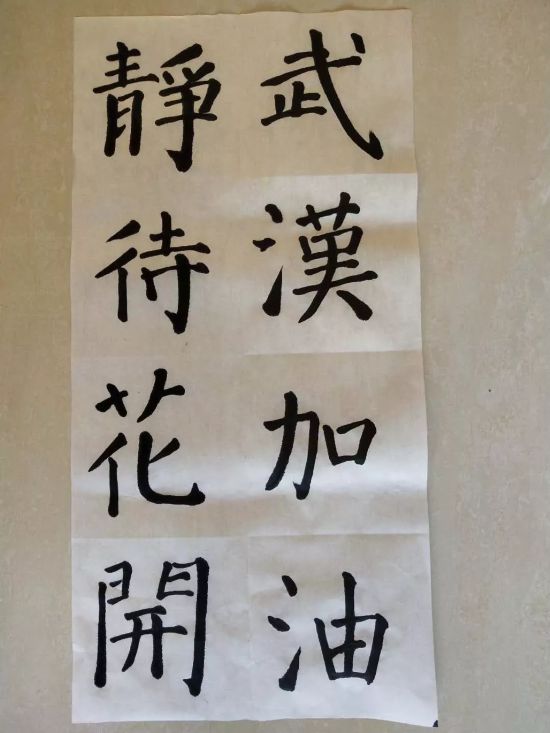 武漢加油
靜待花開